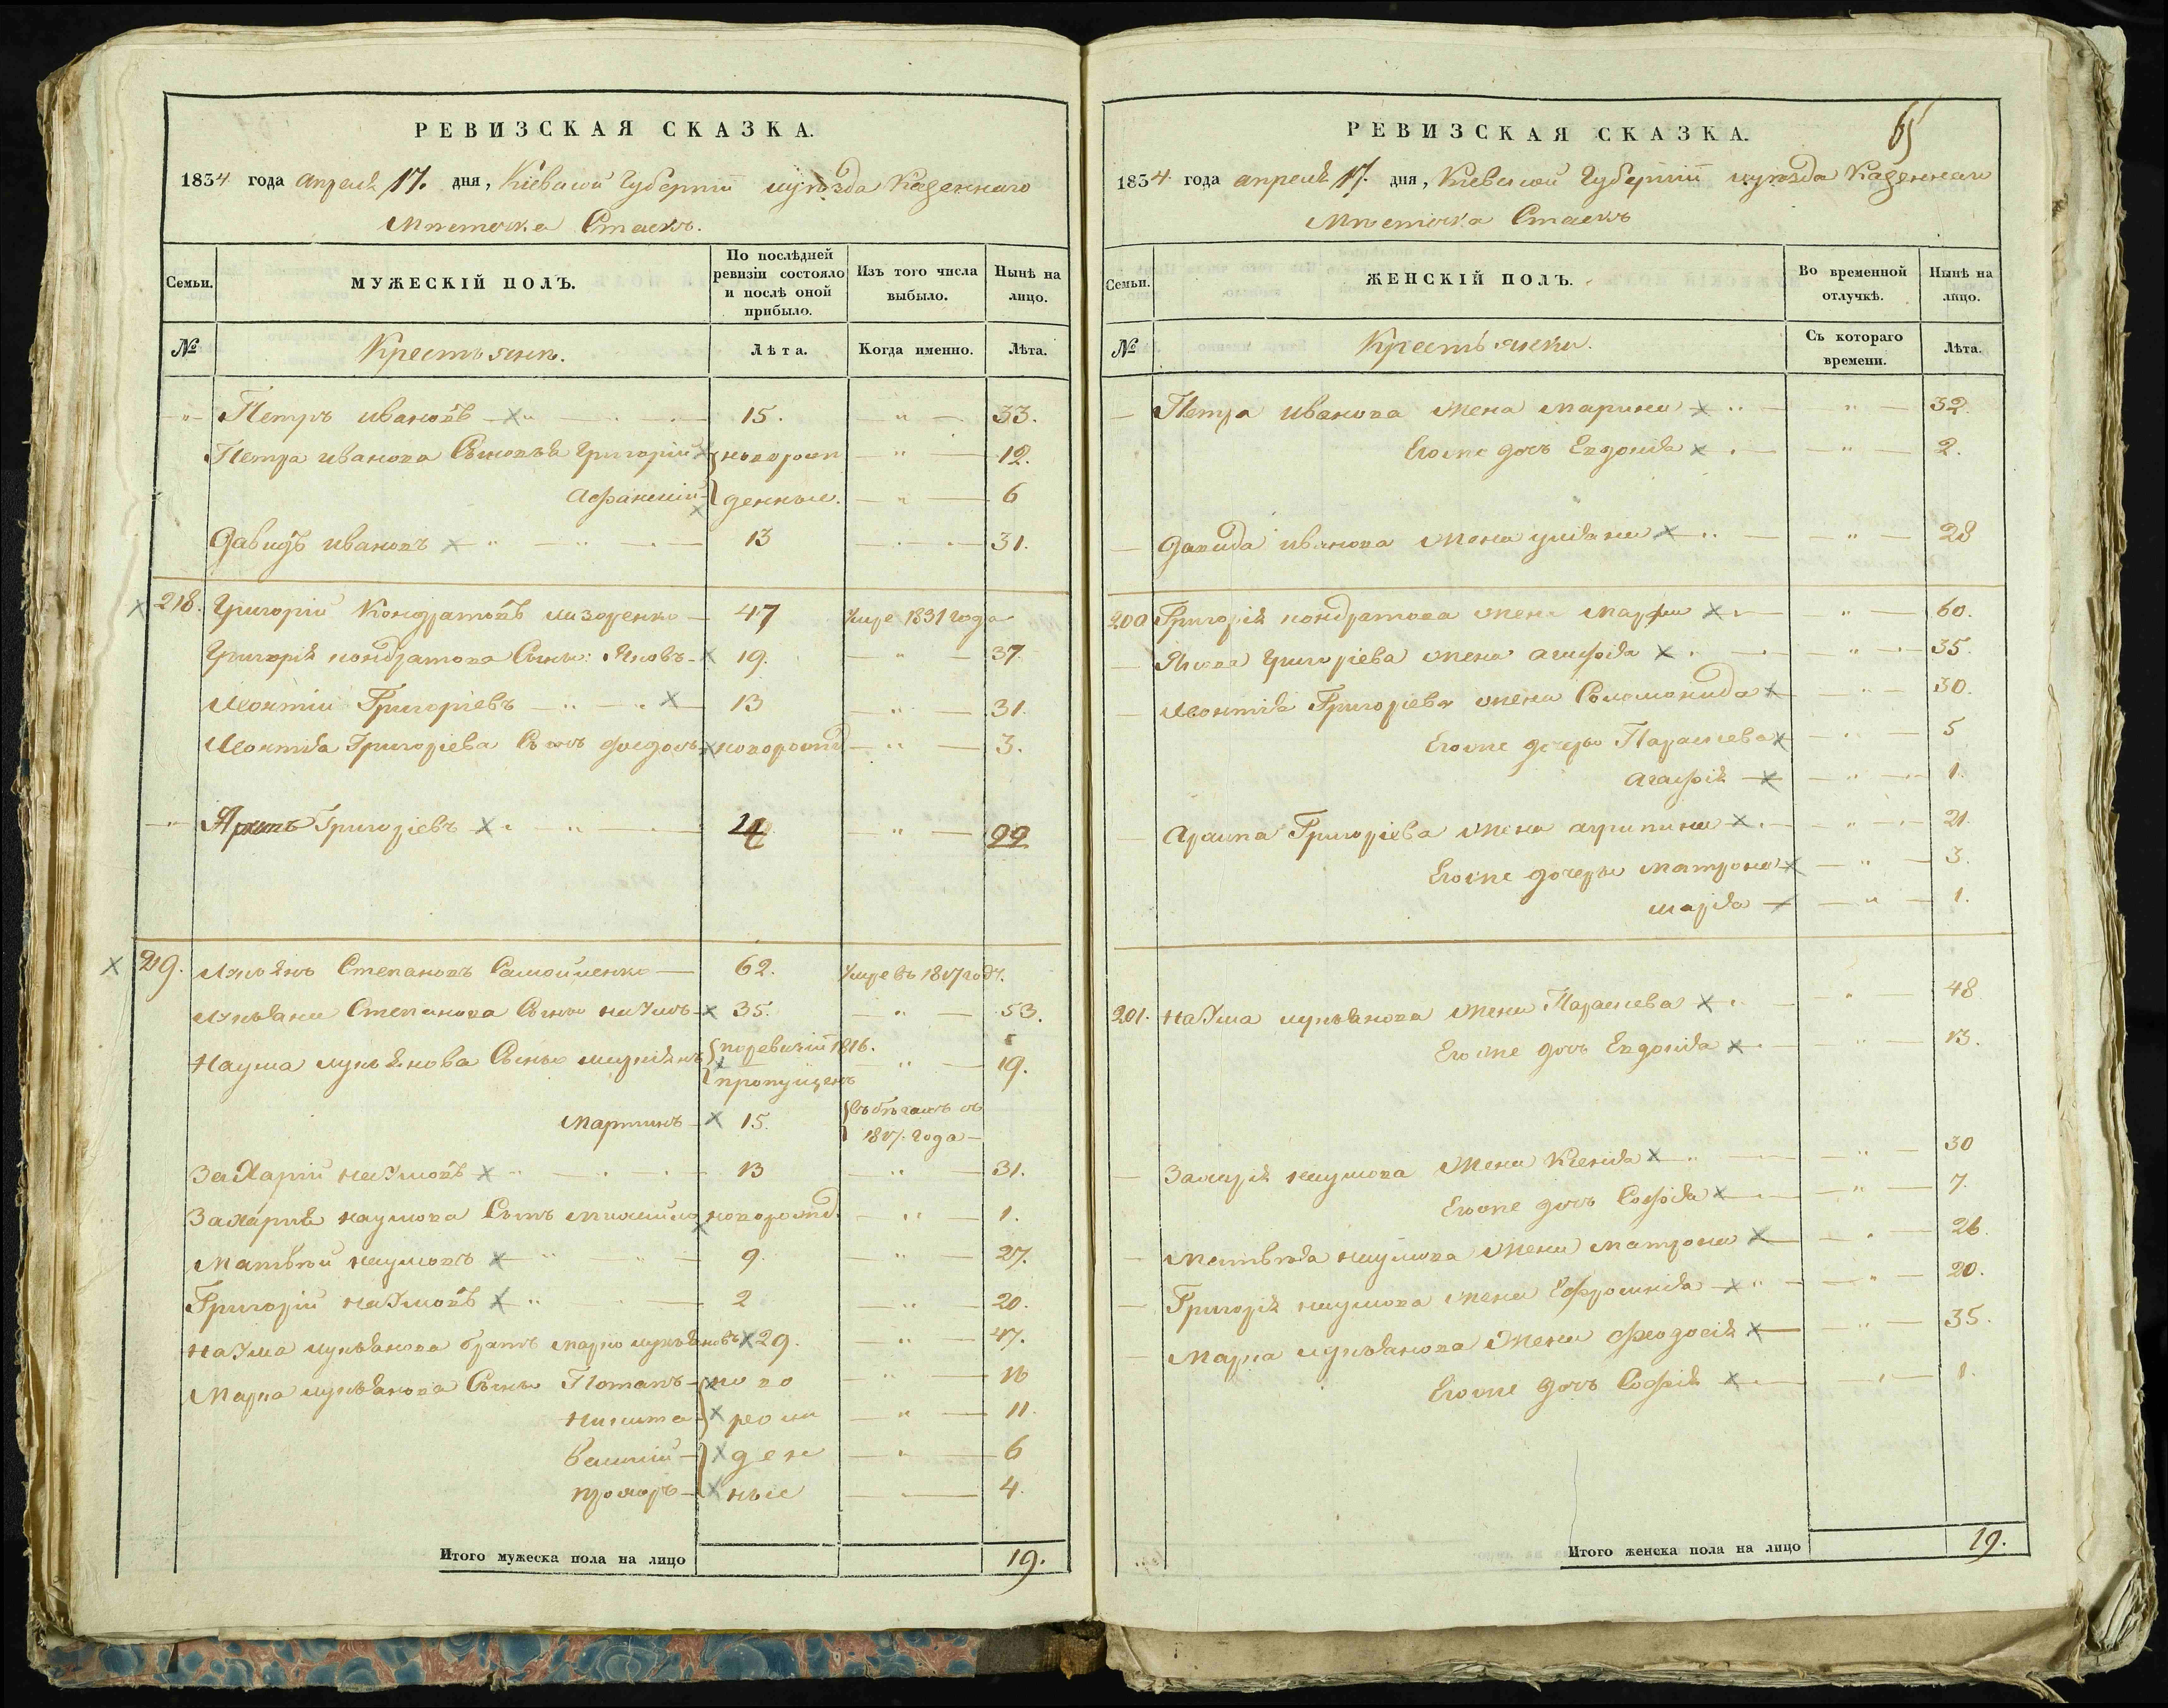 РЕВИЗСКАЯ СКАЗКА.
1834 года апреля 17. дня, Кіевской Губерніи уѣзда Казеннаго
Мѣстечка Стаекъ.
Семьи.
МУЖЕСКІЙ ПОЛЪ.
По послѣдней ревизіи состояло и послѣ оной прибыло.
Изъ того числа выбыло.
Нынѣ на лицо.
№
Крестьяне.
Лѣта.
Когда именно.
Лѣта.
Петръ Ивановъ 15. 33.
Петра Иванова Сыновья Григорій новорож 12.
Афанасій денные. 6
Давидъ Ивановъ 13 31.
218. Григорій Кондратовъ Лазоренко 47 Умре 1831 года
Григорія Кондратова Сынъ: Яковъ 19. 37.
Леонтій Григоріевъ 13 31.
Леонтія Григоріева Сынъ Федоръ новорожд 3.
Архипъ Григоріевъ 4 22
219. Лукьянъ Степановъ Самойленко 62. Умре въ 1817 году.
Лукьяна Степанова Сынъ Наумъ 35. 53.
Наума Лукьянова Сынъ по ревизіи 1816.
пропущенъ 19.
Мартинъ 15. въ бѣгахъ съ
1817. года
Захарій Наумовъ 13 31.
Захарія Наумова Сынъ новорожд. 1.
Матвѣй Наумовъ 9. 27.
Григорій Наумовъ 2 20.
Наума Лукьянова братъ Марко Лукьяновъ 29. 47.
Марка Лукьянова Сынъ Потапъ но во 16
Никита рож 11.
Василій ден 6
Прохоръ ные 4.
Итого мужеска пола на лицо 19.
65
РЕВИЗСКАЯ СКАЗКА.
1834 года апреля 17. дня, Кіевской Губерніи уѣзда Казеннаго
Мѣстечка Стаекъ
Семьи.
ЖЕНСКІЙ ПОЛЪ.
Во временной отлучкѣ.
Нынѣ на лицо.
№
Крестьянки.
Съ котораго времени.
Лѣта.
Петра Иванова жена Марина 32.
Егоже дочь Евдокія 2.
Давида Иванова жена Уліяна 28
200 Григорія Кондратова жена Марфа 60.
Якова Григоріева жена Агафія 35.
Леонтія Григоріева жена Соломонида 30.
Егоже дочери Параскева 5
Агафія 1.
Архипа Григоріева жена Агрипина 21.
Егоже дочери Матрона 3.
Марія 1.
201. Наума Лукьянова жена Параскева 48
Егоже дочь Евдокія 13.
Захарія Наумова жена Ксенія 30
Егоже дочь Софія 7.
Матвѣя Наумова жена Матрона 26.
Григорія Наумова жена Ефросинія 20.
Марка Лукьянова жена Феодосія 35.
Егоже дочь Софія 1.
Итого женска пола на лицо 19.